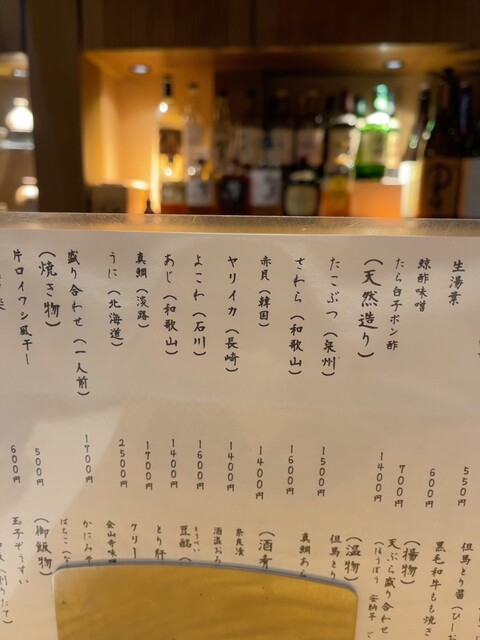 550円
生湯葉
600円
鯨酢味噌
700円
たら白子ポン酢
1400円
(天然造り)
たこぶつ(泉州)
1500円
さわら(和歌山)
1600円
赤貝(韓国)
1400円
ヤリイカ(長崎)
1400円
よこわ(石川)
1600円
あじ(和歌山)
1400円
真鯛(淡路)
1700円
うに(北海道)
2500円
盛り合わせ(一人前)
1700円
(焼き物)
500円
片口イワシ風干し
600円
但馬とり醤(ひしお
黒毛和牛もも焼き
(揚物)
天ぷら盛り合わせ
(ほうぼう 安納芋
(温物)
但馬とり
真鯛あら
(酒肴)
奈良漬
酒盗おろ
とうべい
豆酩
とり肝
クリー
金山寺味噌
かにみそ
(御飯物)
玉子ぞうすい